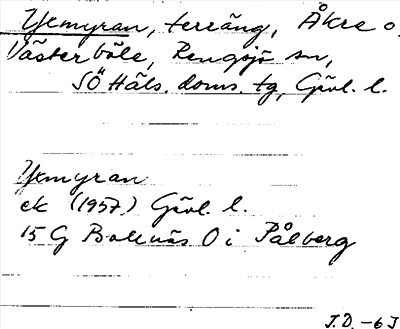 Yxmyran, terräng, Åkre o.
Västerböle, Rengsjö sn,
SÖ Häls. doms. tg, Gävl. l.
Yxmyran
ek (1957) Gävl. l.
15 G Bollnäs O i Pålberg
J.D. -63